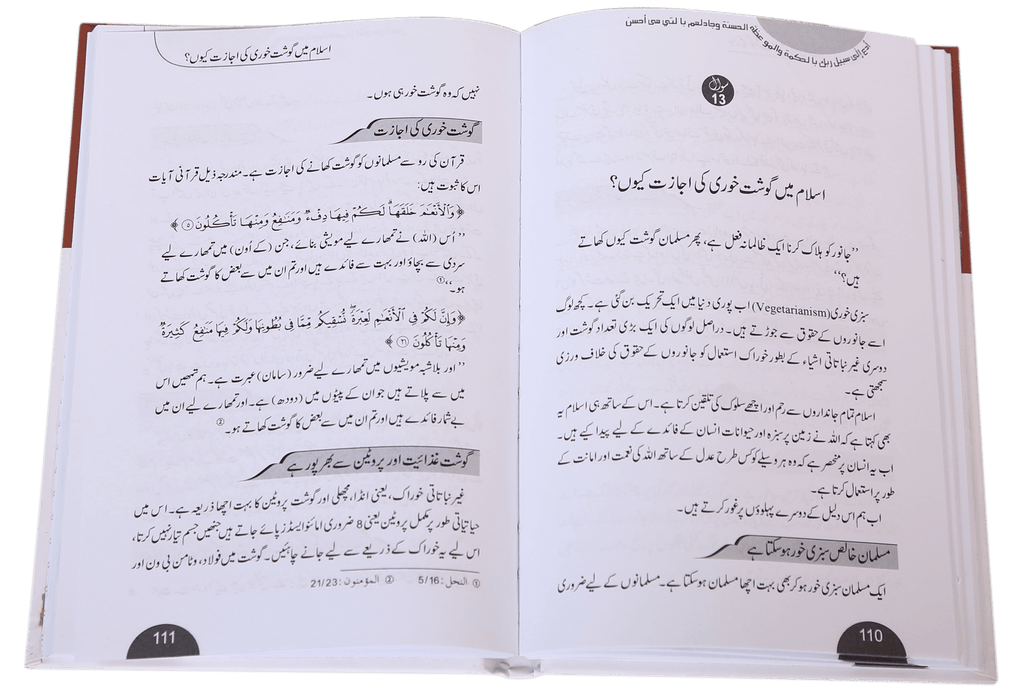 أدع إلى سبيل ربك بالحكمة والموعظة الحسنة وجادلهم بالتي هي أحسن
سوال
13
اسلام میں گوشت خوری کی اجازت کیوں؟
’’جانور کو ہلاک کرنا ایک ظالمانہ فعل ہے، پھر مسلمان گوشت کیوں کھاتے
ہیں؟‘‘
سبزی خوری (Vegetarianism) اب پوری دنیا میں ایک تحریک بن گئی ہے۔ کچھ لوگ
اسے جانوروں کے حقوق سے جوڑتے ہیں۔ دراصل لوگوں کی ایک بڑی تعداد گوشت اور
دوسری غیر نباتاتی اشیاء کے بطور خوراک استعمال کو جانوروں کے حقوق کی خلاف ورزی
سمجھتی ہے۔
اسلام تمام جانداروں سے رحم اور اچھے سلوک کی تلقین کرتا ہے۔ اس کے ساتھ ہی اسلام یہ
بھی کہتا ہے کہ اللہ نے زمین پر سبزہ اور حیوانات انسان کے فائدے کے لیے پیدا کیے ہیں۔
اب یہ انسان پر منحصر ہے کہ وہ ہر وسیلے کو کس طرح عدل کے ساتھ اللہ کی نعمت اور امانت کے
طور پر استعمال کرتا ہے۔
اب ہم اس دلیل کے دوسرے پہلوؤں پر غور کرتے ہیں۔
مسلمان خالص سبزی خور ہو سکتا ہے
ایک مسلمان سبزی خور ہو کر بھی بہت اچھا مسلمان ہو سکتا ہے۔ مسلمانوں کے لیے ضروری
110
اسلام میں گوشت خوری کی اجازت کیوں؟
نہیں کہ وہ گوشت خور ہی ہوں۔
گوشت خوری کی اجازت
قرآن کی رو سے مسلمانوں کو گوشت کھانے کی اجازت ہے۔ مندرجہ ذیل قرآنی آیات
اس کا ثبوت ہیں:
﴿وَالْأَنْعَامَ خَلَقَهَا ۗ لَكُمْ فِيهَا دِفْءٌ وَمَنَافِعُ وَمِنْهَا تَأْكُلُونَ ۝٥﴾
’’اُس (اللہ) نے تمھارے لیے مویشی بنائے، جن (کے اُون) میں تمھارے لیے
سردی سے بچاؤ اور بہت سے فائدے ہیں اور تم ان میں سے بعض کا گوشت کھاتے
ہو۔‘‘①
﴿وَإِنَّ لَكُمْ فِي الْأَنْعَامِ لَعِبْرَةً ۖ نُسْقِيكُم مِّمَّا فِي بُطُونِهَا وَلَكُمْ فِيهَا مَنَافِعُ كَثِيرَةٌ
وَمِنْهَا تَأْكُلُونَ ۝٢١﴾
’’اور بلاشبہ مویشیوں میں تمھارے لیے ضرور (سامان) عبرت ہے۔ ہم تمھیں اس
میں سے پلاتے ہیں جو ان کے پیٹوں میں (دودھ) ہے۔ اور تمھارے لیے ان میں
بے شمار فائدے ہیں اور تم ان میں سے بعض کا گوشت کھاتے ہو۔②
گوشت غذائیت اور پروٹین سے بھرپور ہے
غیر نباتاتی خوراک، یعنی انڈا، مچھلی اور گوشت پروٹین کا بہت اچھا ذریعہ ہے۔ اس میں
حیاتیاتی طور پر مکمل پروٹین یعنی 8 ضروری امائنو ایسڈز پائے جاتے ہیں جنھیں جسم تیار نہیں کرتا،
اس لیے یہ خوراک کے ذریعے سے لیے جانے چاہئیں۔ گوشت میں فولاد، وٹامن بی ون اور
① النحل: 5/16 ② المؤمنون: 21/23
111